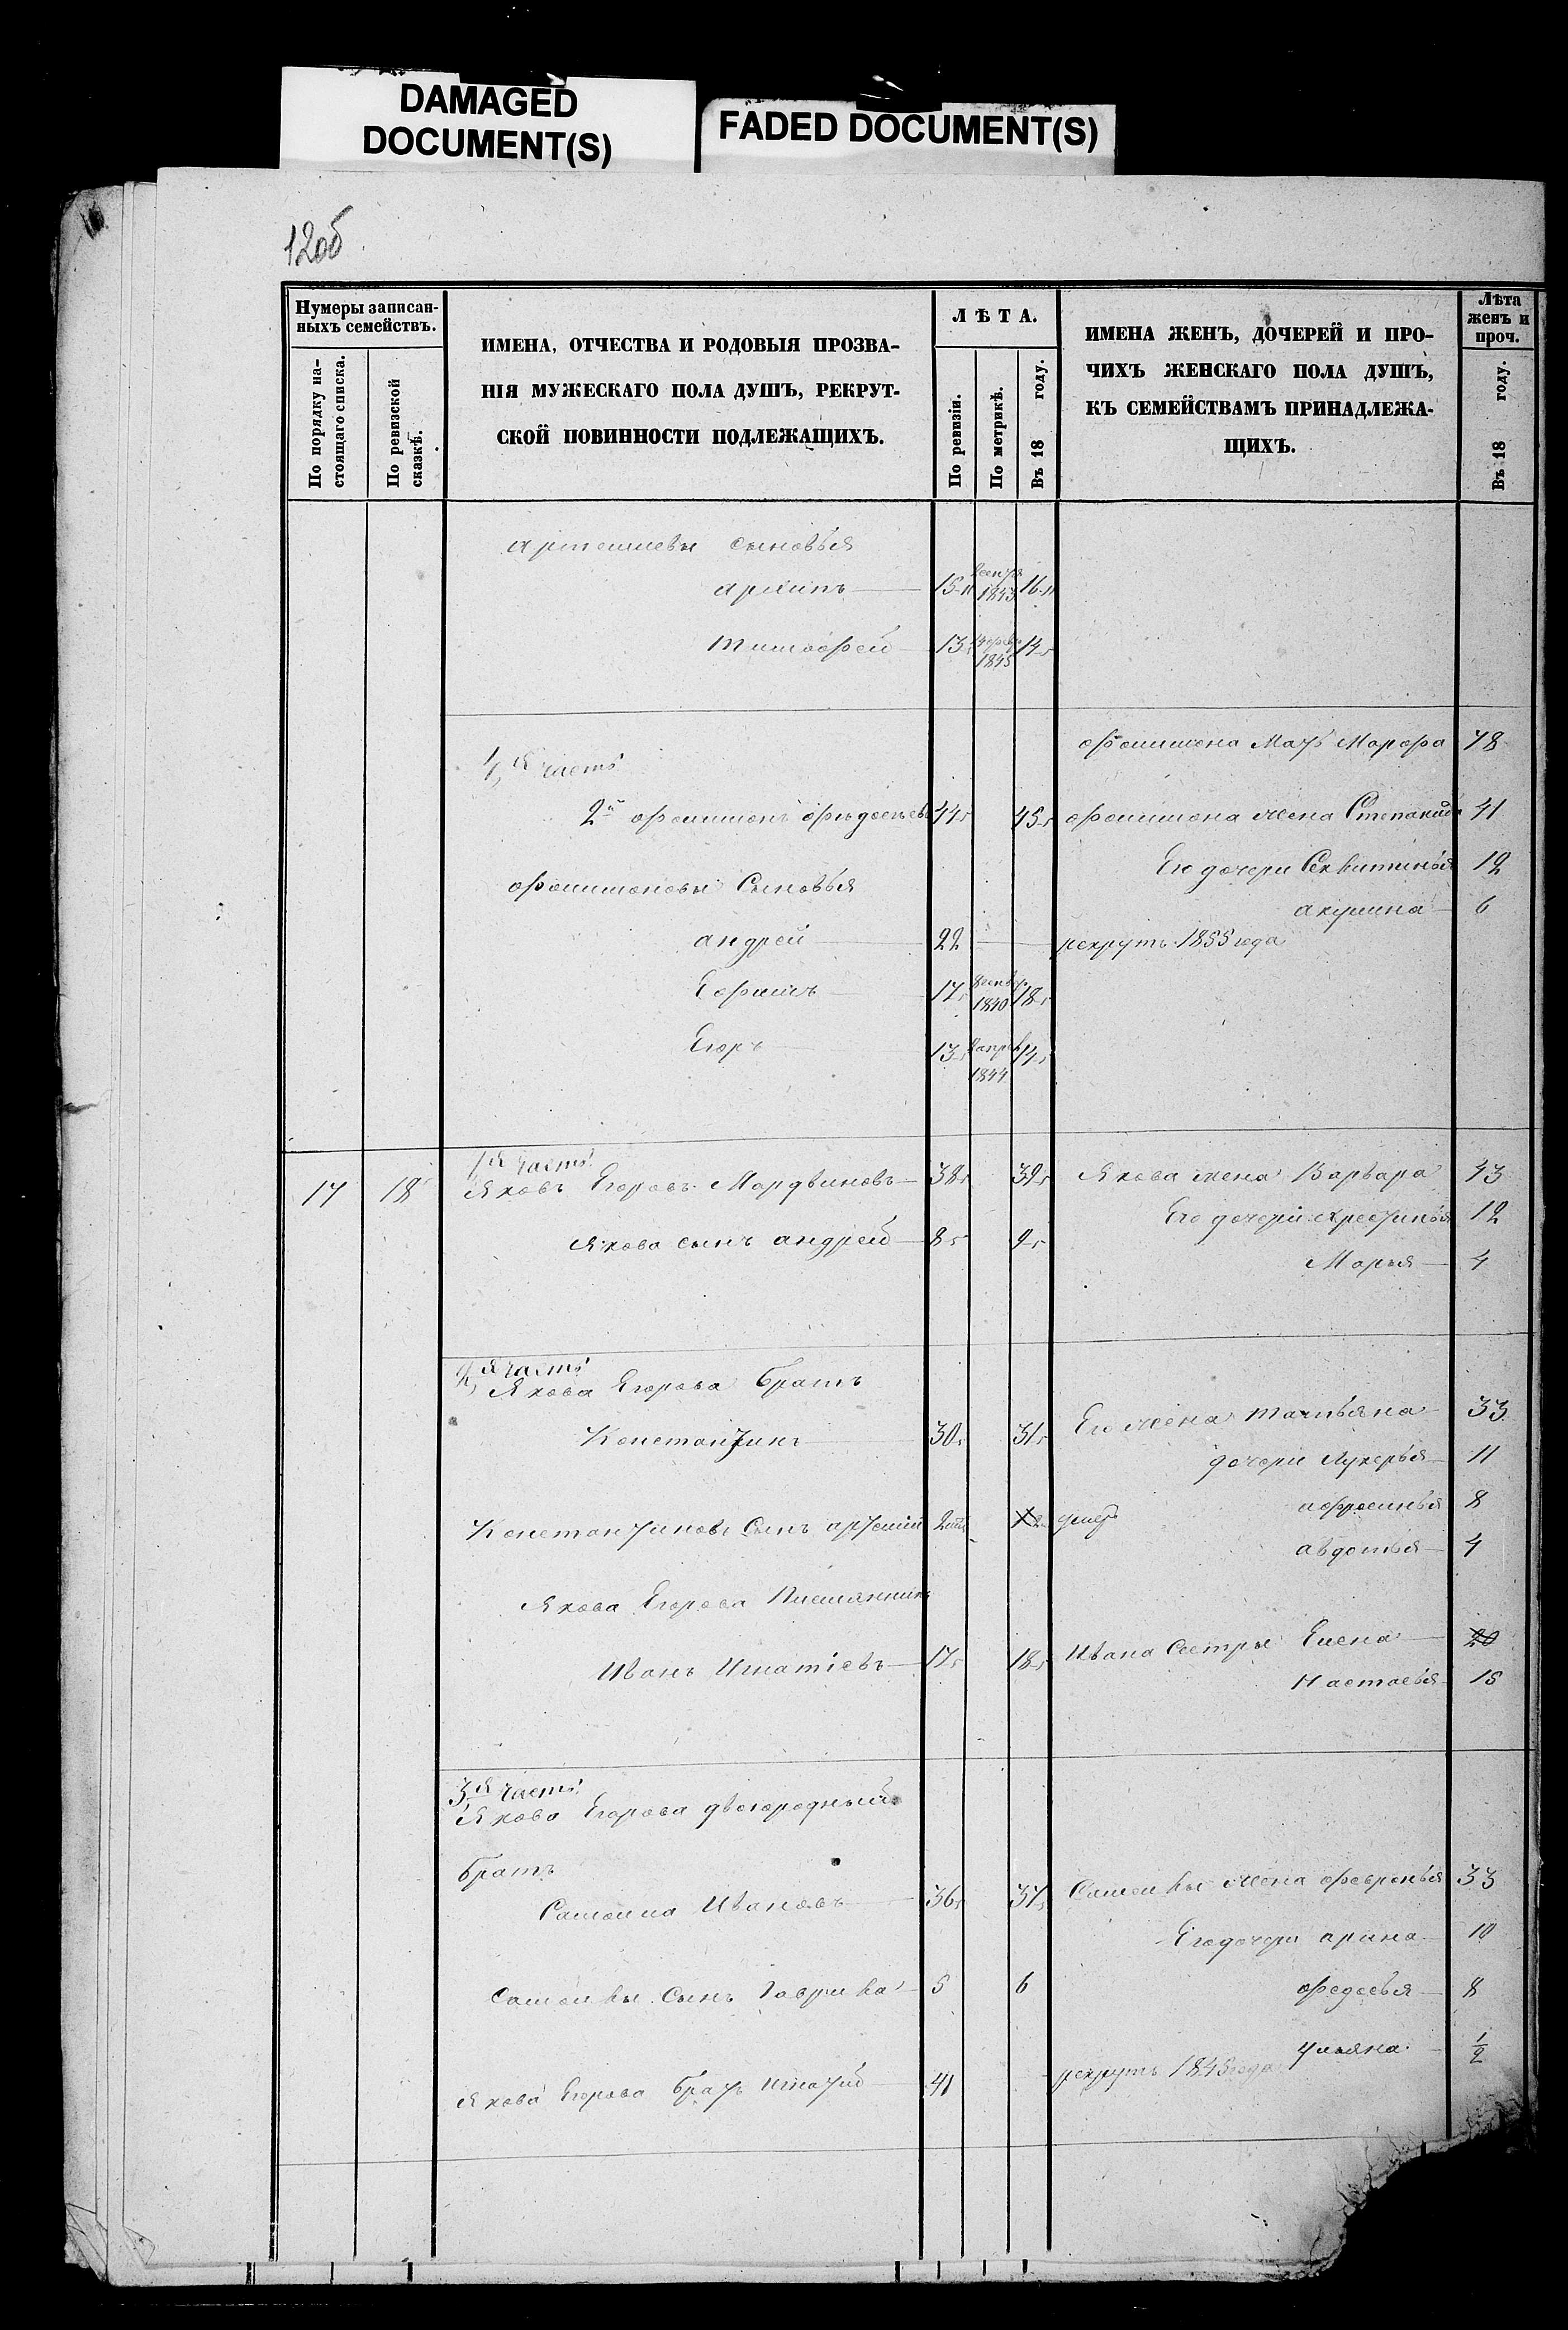 DAMAGED
DOCUMENT(S)
FADED DOCUMENT(S)
12об
Нумеры записан-
ныхъ семействъ.
По порядку на-
стоящаго списка.
По ревизской
сказкѣ.
ИМЕНА, ОТЧЕСТВА И РОДОВЫЯ ПРОЗВА-
НІЯ МУЖЕСКАГО ПОЛА ДУШЪ, РЕКРУТ-
СКОЙ ПОВИННОСТИ ПОДЛЕЖАЩИХЪ.
ЛѢТА.
По ревизіи.
По метрикѣ.
Въ 18 году.
ИМЕНА ЖЕНЪ, ДОЧЕРЕЙ И ПРО-
ЧИХЪ ЖЕНСКАГО ПОЛА ДУШЪ,
КЪ СЕМЕЙСТВАМЪ ПРИНАДЛЕЖА-
ЩИХЪ.
Лѣта
женъ и
проч.
Въ 18 году.
сыновья
архипъ 15 1843 16
тимофей 13 1845 14
мать Марфа 78
4я часть
2й 44 45 жена Степанида 41
Его дочери 12
сыновья
акулина 6
андрей 22 рекрутъ 1855 года
Ефимъ 17 1840 18
Егоръ 13 1844 14
17 18 1я часть
Яковъ Егоровъ Мордвиновъ 38 39 Якова жена Варвара 43
Его дочери Хрестинья 12
Якова сынъ андрей 8 9
Марья 4
2я часть
Якова Егорова братъ
Константинъ 30 31 Его жена татьяна 33
дочери Лукерья 11
Константиновъ сынъ артемій 2 умеръ афросинья 8
авдотья 4
Якова Егорова племянникъ
Иванъ Игнатіевъ 17 18 Ивана сестры Елена 20
Настасья 15
3я часть
Якова Егорова двоюродный
братъ
Самойла Ивановъ 36 37 Самойлы жена февронья 33
Его дочери арина 10
Самойлы сынъ Гаврила 5 6 федосья 8
ульяна 1/2
Якова Егорова братъ Игнатій 41 рекрутъ 1845 года